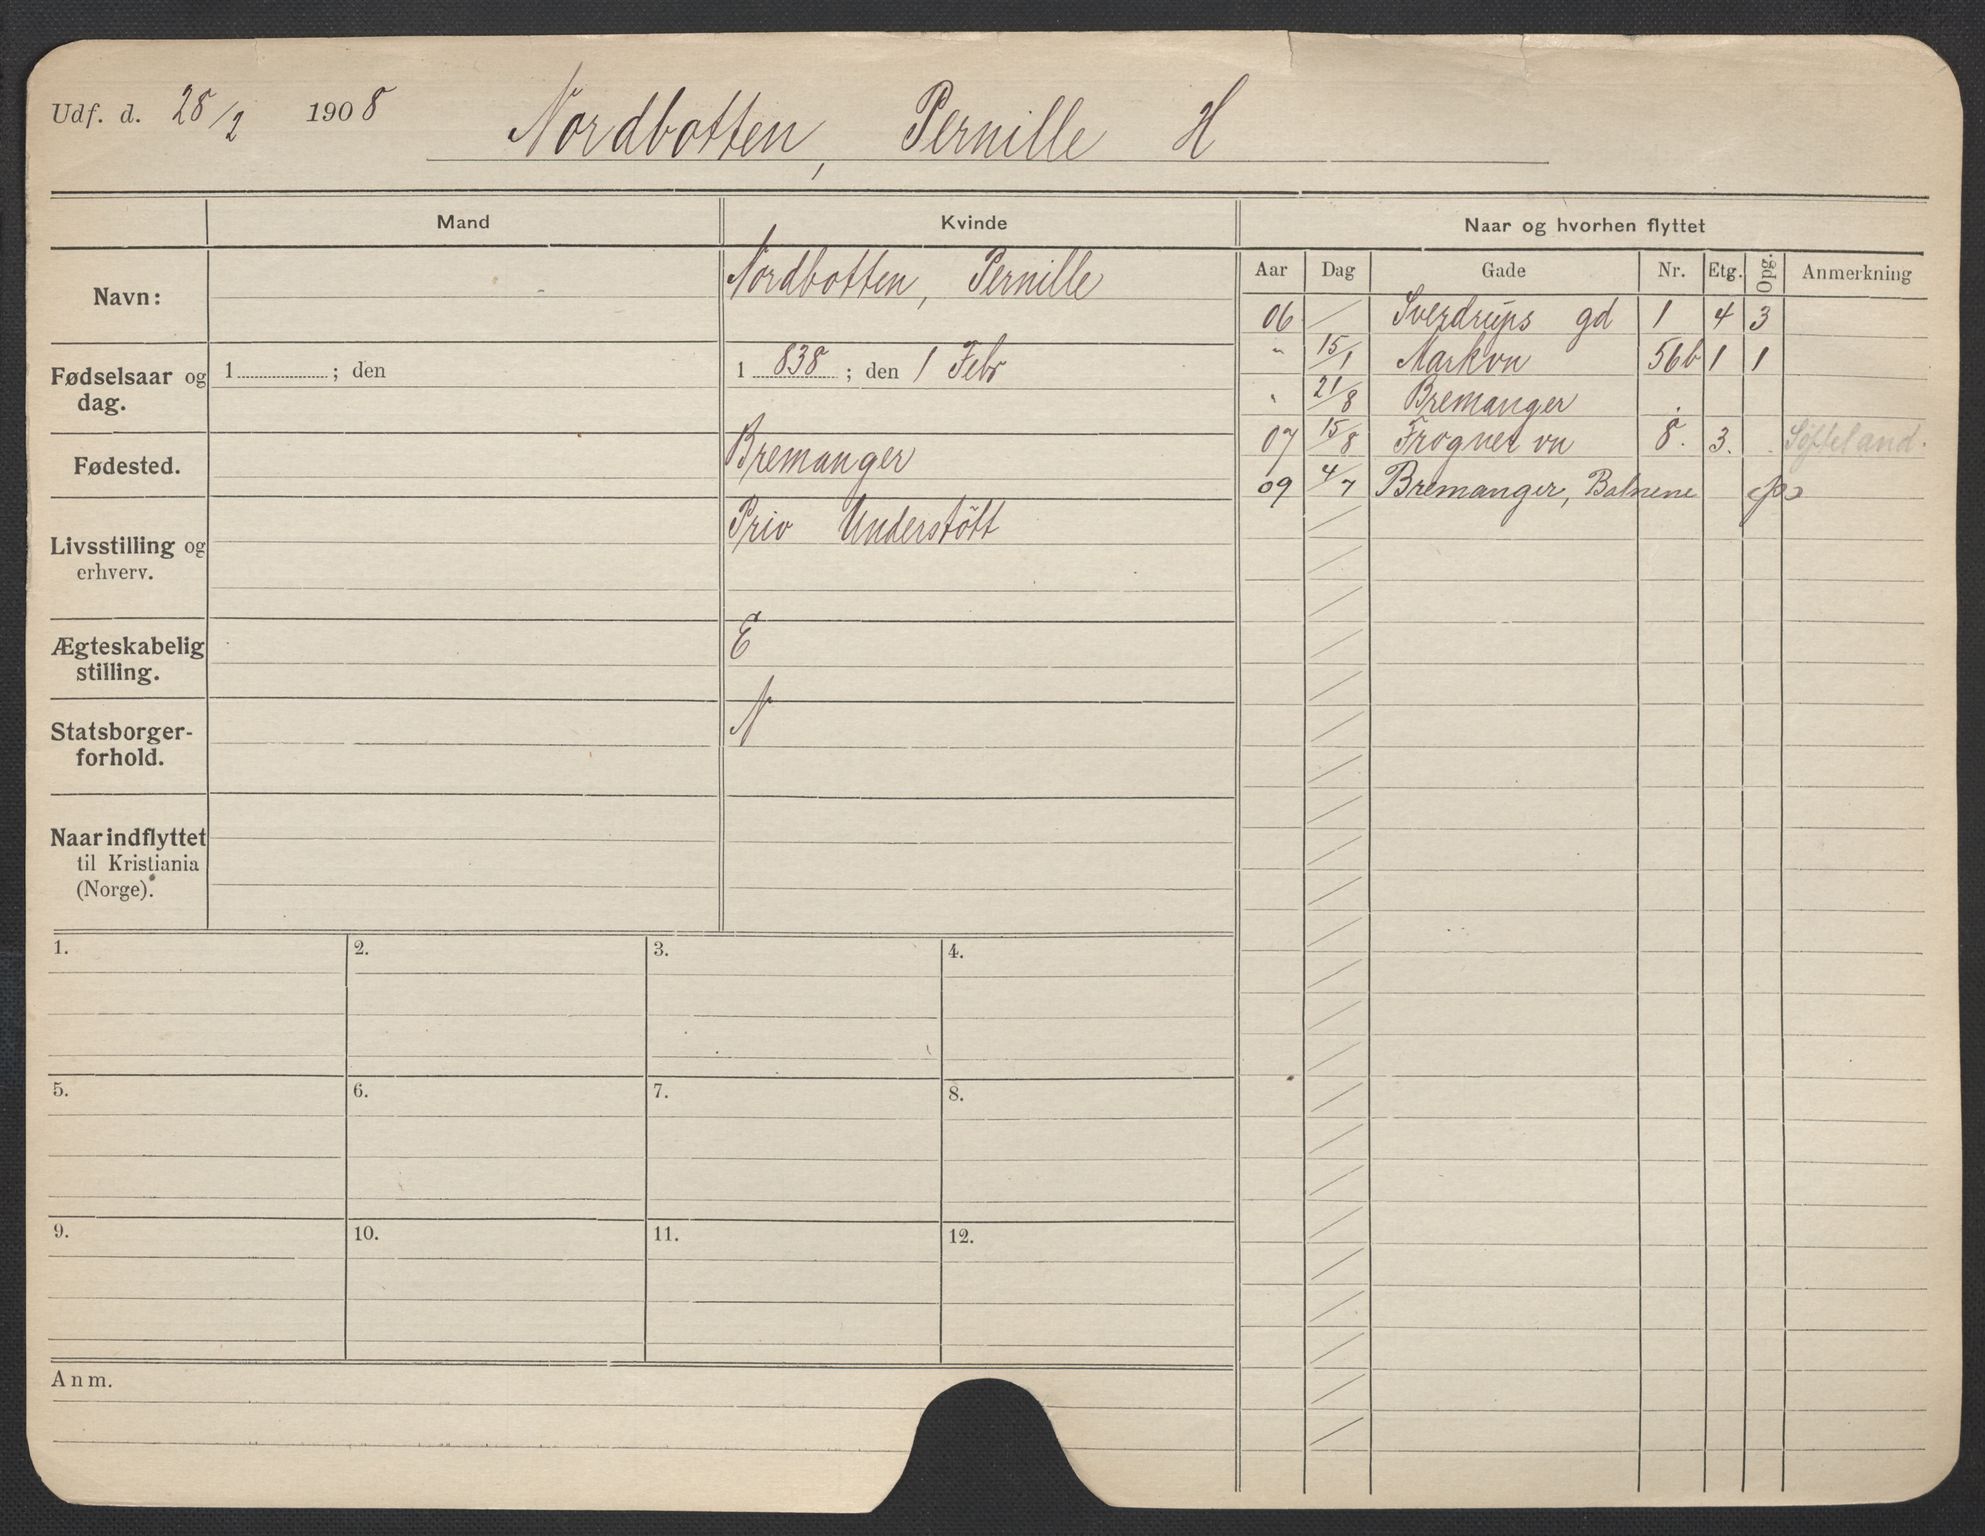 Udf. d. 28/2 1908 Nordbotten, Pernille H
Mand Kvinde Naar og hvorhen flyttet
Aar Dag Gade Nr. Etg. Opg. Anmerkning
Navn: Nordbotten, Pernille
Fødselsaar og dag. 1 ; den 1 838 ; den 1 Febr
Fødested. Bremanger
Livsstilling og erhverv. Priv Understött
Ægteskabelig stilling. E
Statsborgerforhold. N
Naar indflyttet til Kristiania (Norge).
06 Sverdrups gd 1 4 3
" 15/1 Markvn 56b 1 1
" 21/8 Bremanger
07 15/8 Frogner vn 8. 3. Søfteland.
09 4/7 Bremanger,
1. 2. 3. 4.
5. 6. 7. 8.
9. 10. 11. 12.
Anm.